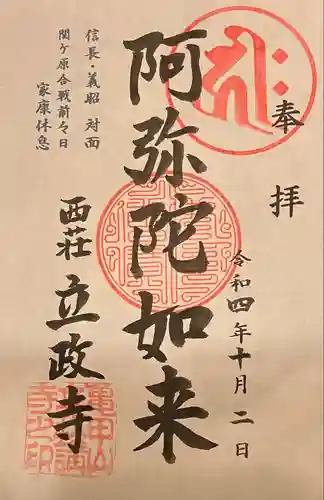 奉拝
令和四年十月二日
阿弥陀如来
信長・義昭 対面
関ヶ原合戦前々日
家康休息
西荘 立政寺